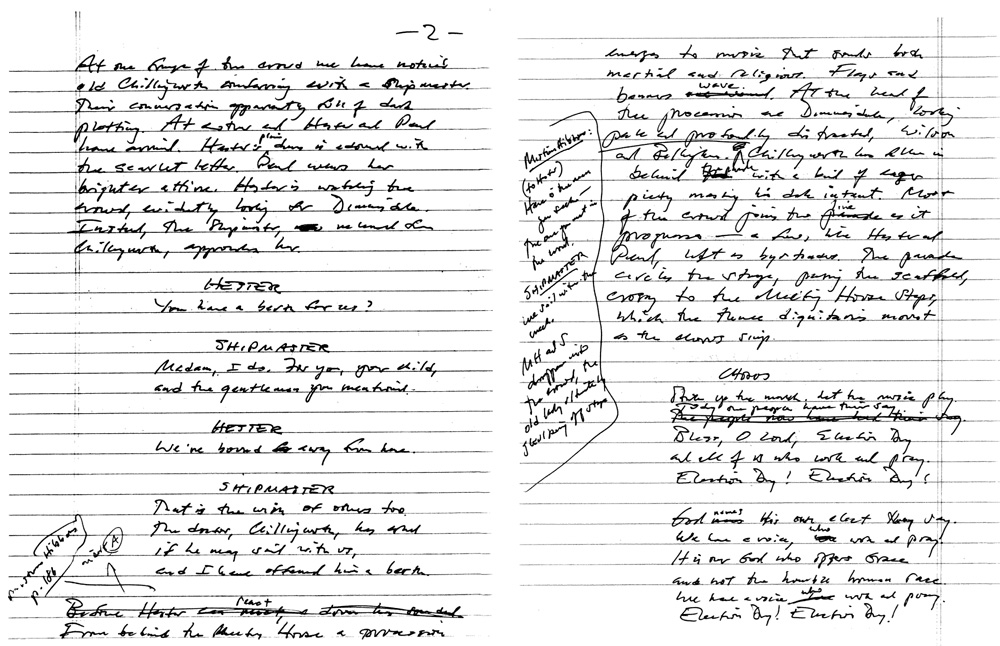 — 2 —
At one fringe of the crowd we have noticed
old Chillingworth conferring with a Shipmaster.
Their conversation apparently full of dark
plotting. At another end Hester and Pearl
have arrived. Hester's plain dress is adorned with
the scarlet letter. Pearl wears her
brighter attire. Hester's watching the
crowd, evidently looking for Dimmesdale.
Instead, the Shipmaster, removed from
Chillingworth, approaches her.
HESTER
You have a berth for us?
SHIPMASTER
Madam, I do. For you, your child,
and the gentleman you mentioned.
HESTER
We're bound away from here.
SHIPMASTER
That is the wish of others too.
The doctor, Chillingworth, has asked
if he may sail with us,
and I have offered him a berth.
Hibbins
p. 186
A
Before Hester can react, a down
From behind the Meeting House a procession
emerges to music that sounds both
martial and religious. Flags and
banners wave. At the head of
the procession are Dimmesdale, looking
pale and profoundly distracted, Wilson
and Bellingham. Chillingworth has fallen in
behind with a kind of eager
piety masking his dark intent. Most
of the crowd joins the parade as it
progresses — a few, like Hester and
Pearl, left as bystanders. The parade
circles the stage, passing the scaffold,
crossing to the Meeting House steps,
which the three dignitaries mount
as the chorus sings.
Mistress Hibbins:
(to Hester)
Here is the man
you seek —
the one you met in
the wood.
SHIPMASTER
We sail within the
week.
MH and S
disappear into
the crowd, the
old lady
off stage
CHORUS
Strike up the march, let the music play.
Today our people have their say.
The people now have had their say
Bless, O Lord, Election Day
and all of us who work and pray.
Election Day! Election Day!
God names His own elect they say.
We have a voice, who work and pray.
It is our God who offers Grace
and not the humble human race.
We have a voice who work and pray.
Election Day! Election Day!